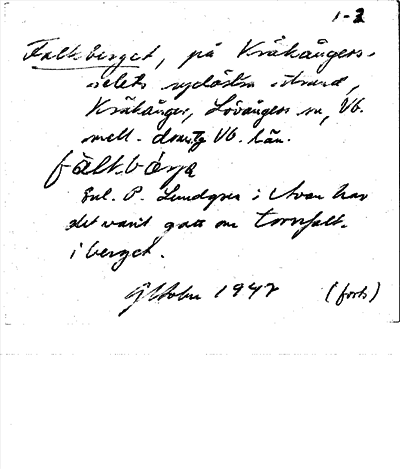 1-2
Falkberget, på Kråkångers-
selets sydöstra strand,
Kråkånger, Lövångers sn, Vb.
mell. domsg Vb. län.
fàlkbǽrjə
Enl. P. Lundgren i Avan har
det varit gott om tornfalk
i berget.
G Holm 1942 (forts)